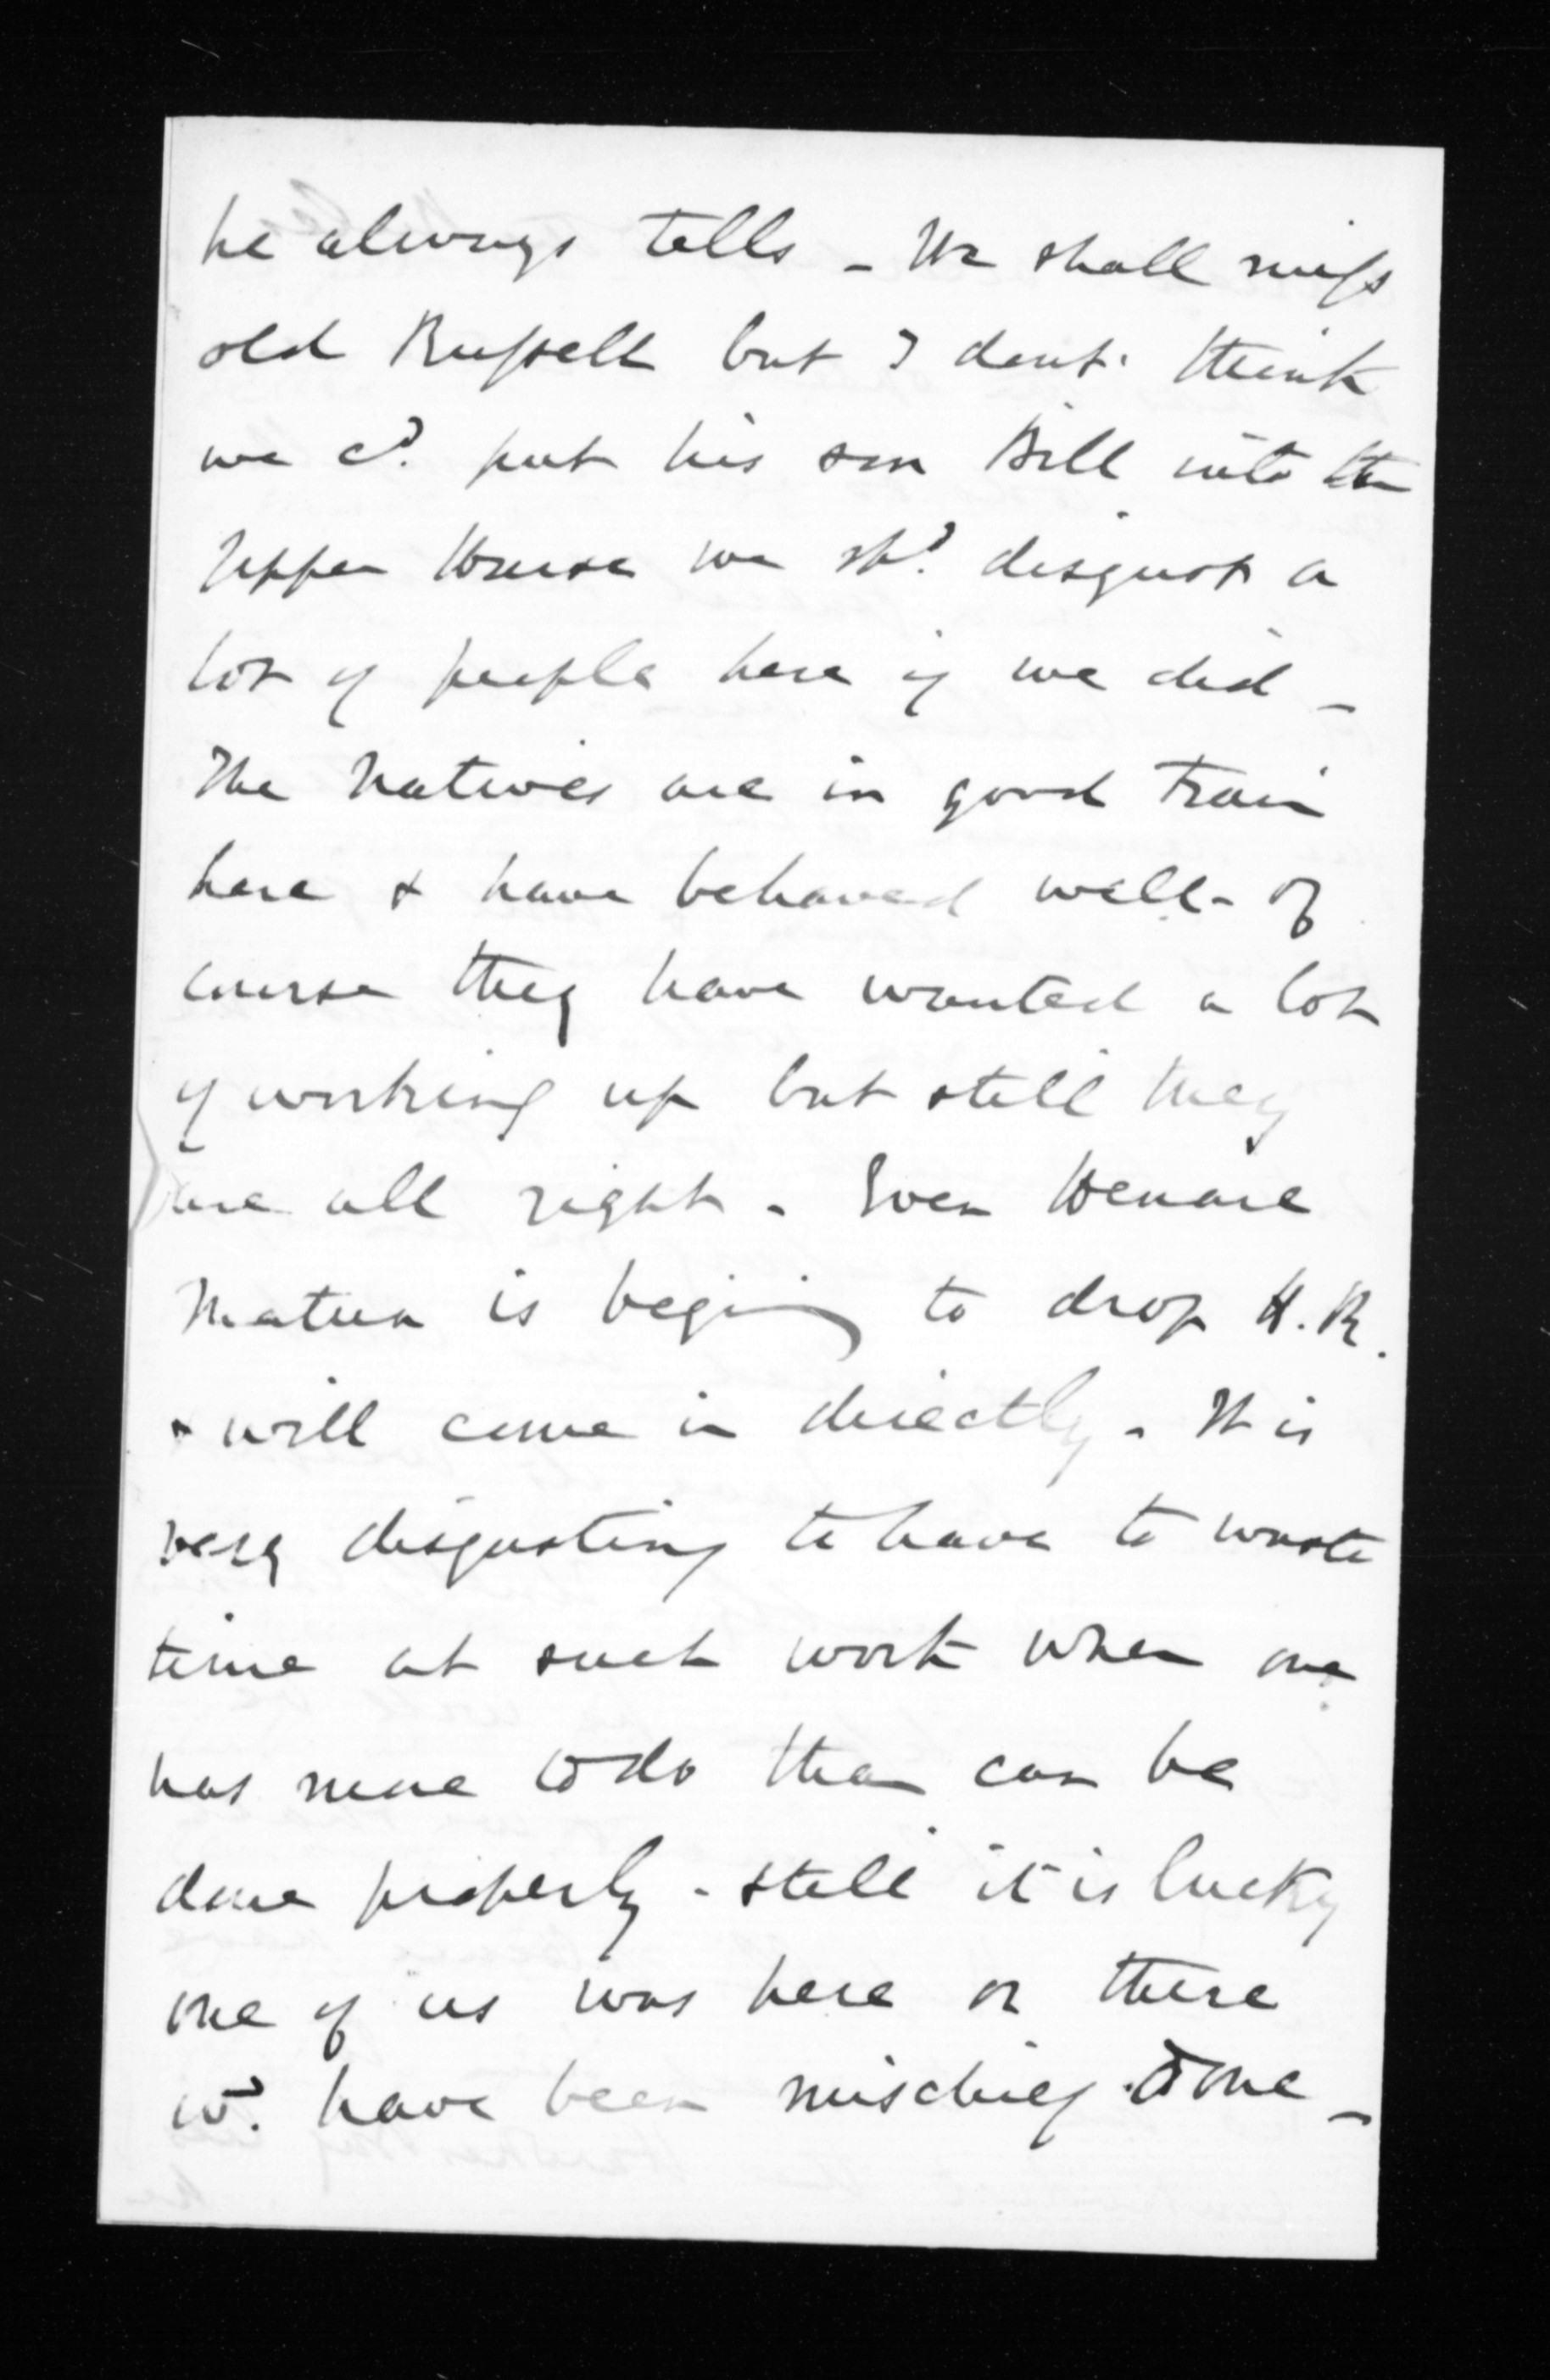 he always tells - We shall miss
old Russell but I dont think
we cd. put his son Bill into the
Upper House we shd. disgust a
lot of people here if we did -
The Natives are in good train
here & have behaved well - Of
course they have wanted a lot
of working up but still they
are all right - Even Henare
Matua is begining to drop H.R.
& will come in directly - It is
very disgusting to have to waste
time at such work when one
has more to do than can be
done properly - still it is lucky
one of us was here or there
wd. have been mischief done -